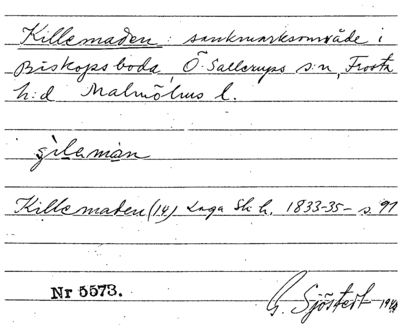 Killemaden : sankmarksområde i
Biskopsboda, Ö. Sallerups s:n, Frosta
h:d Malmöhus l.
Killematen (14) Laga Sk h. 1833-35- s. 91
Nr 5573.
G. Sjöstedt